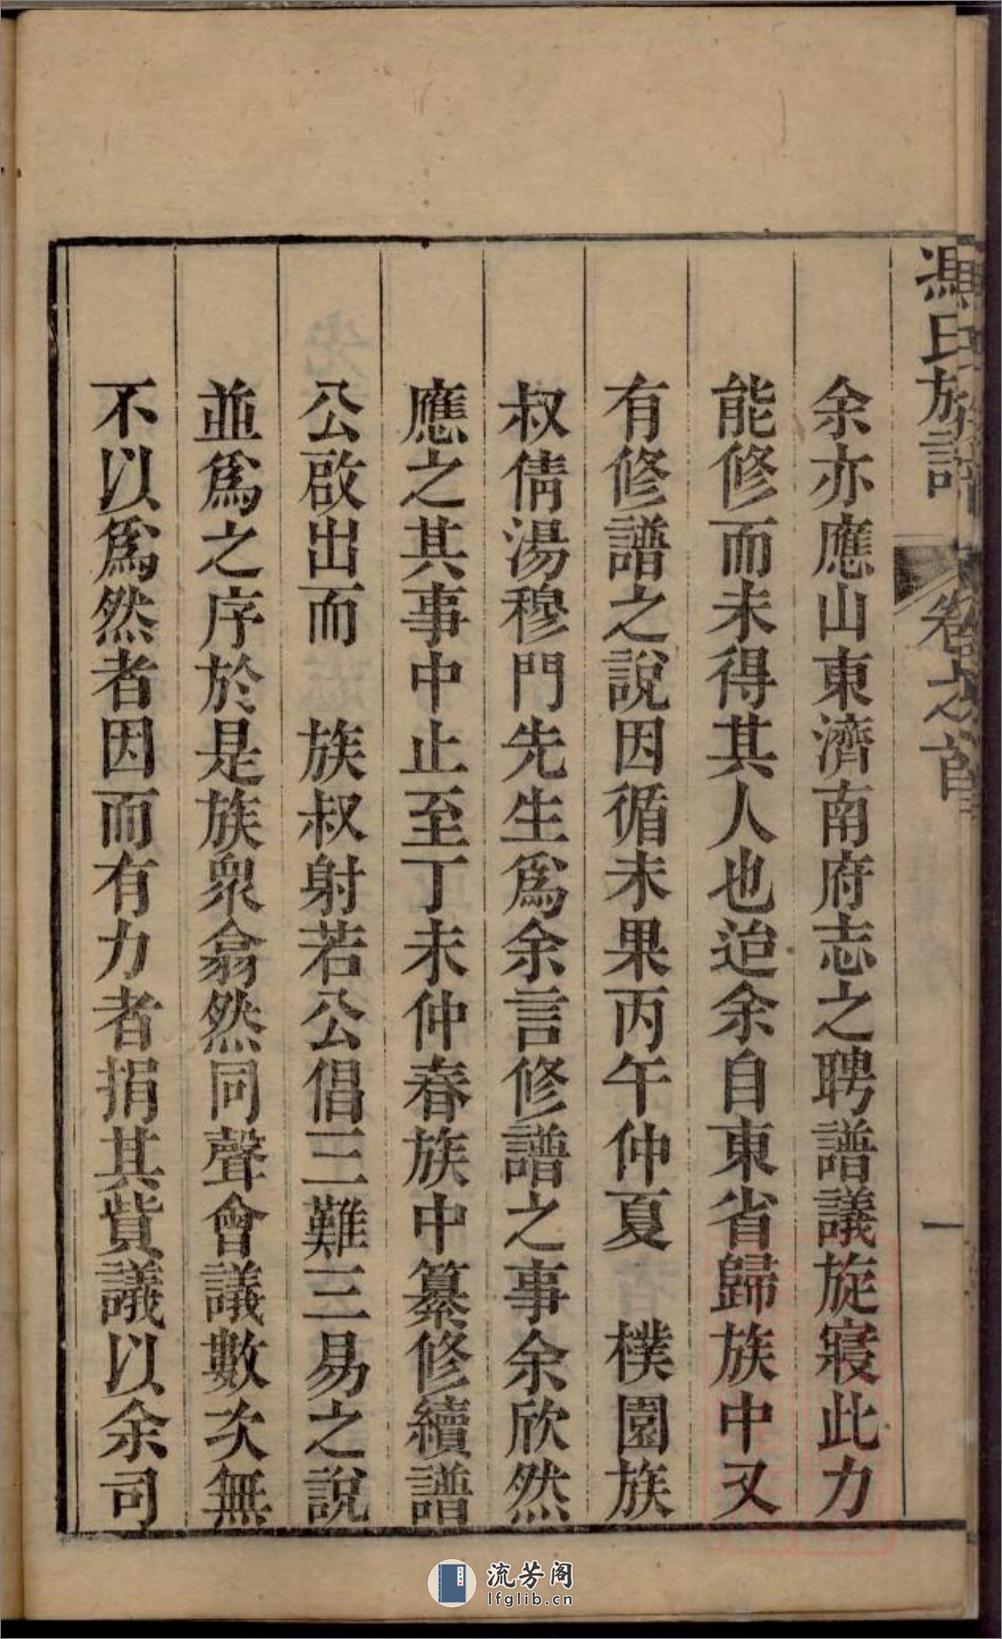 馮氏族譜 卷之首 一
余亦應山東濟南府志之聘譜議旋寢此力
能修而未得其人也迨余自東省歸族中又
有修譜之說因循未果丙午仲夏 樸園族
叔倩湯穆門先生爲余言修譜之事余欣然
應之其事中止至丁未仲春族中纂修續譜
公啟出而 族叔射若公倡三難三易之說
並爲之序於是族衆翕然同聲會議數次無
不以爲然者因而有力者捐其貲議以余司
流芳阁
lfglib.cn